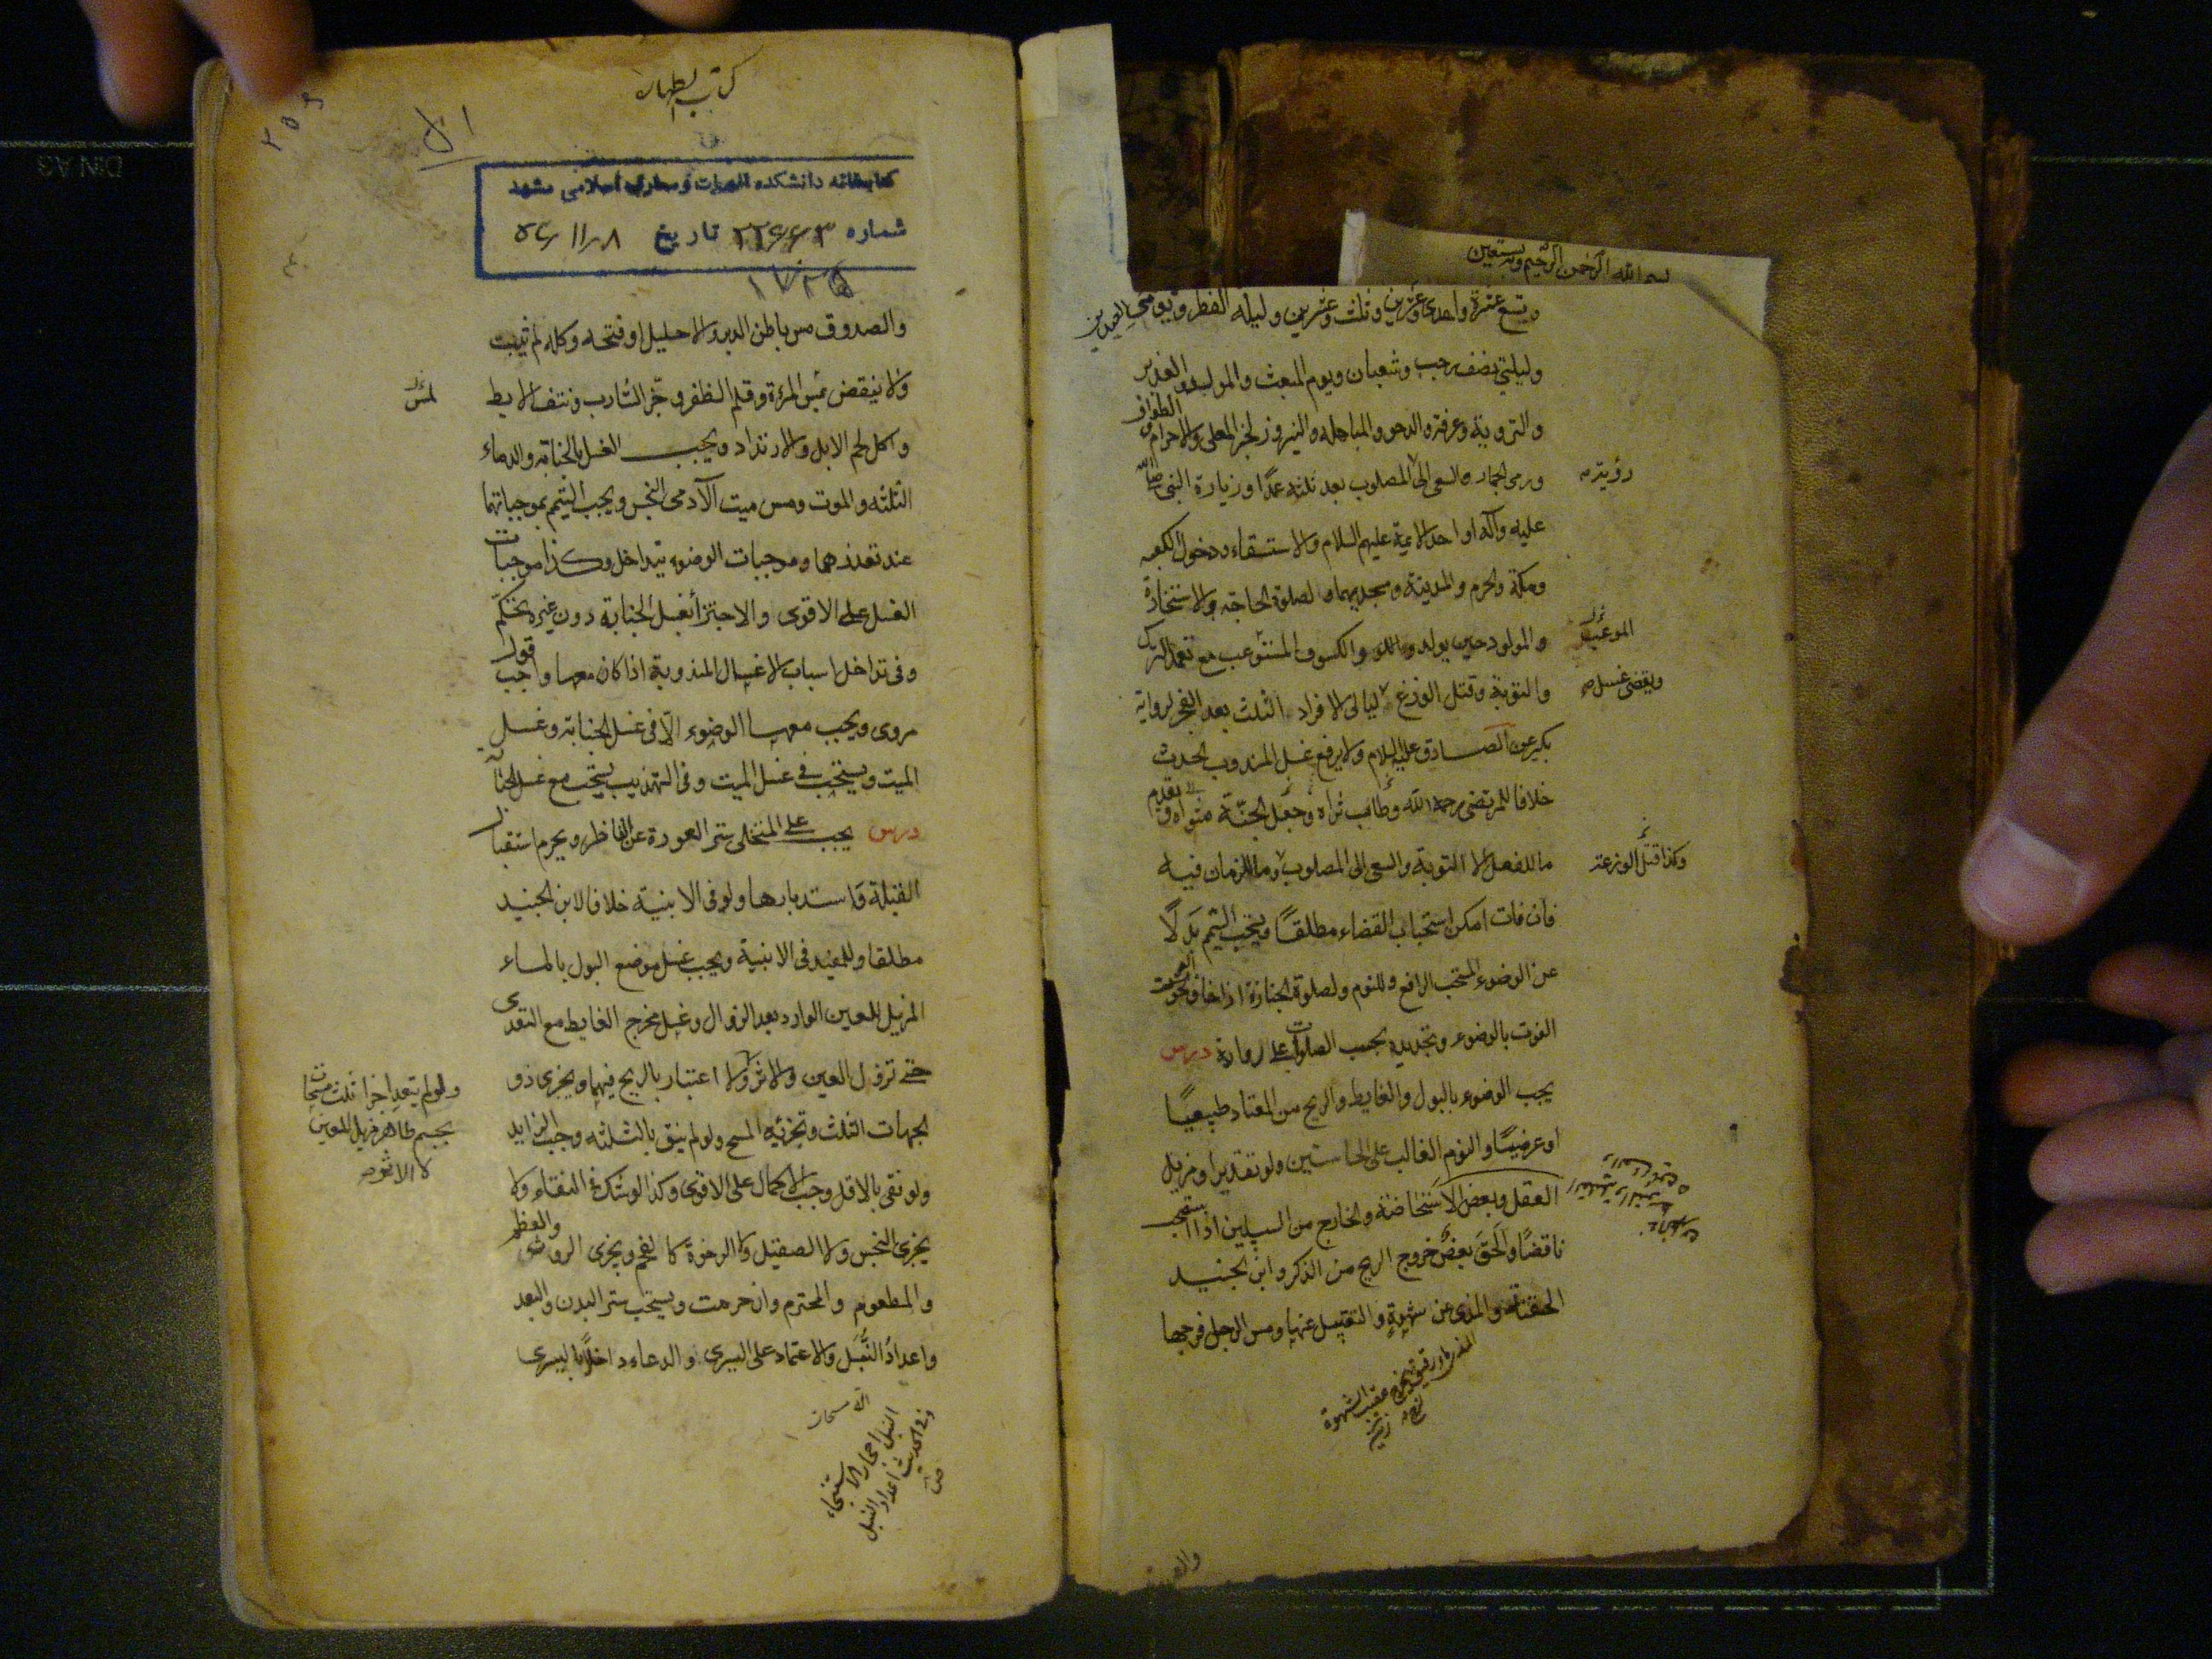 بسم الله الرحمن الرحيم وبه نستعين
وتسع عشرة واحدى وعشرين وثلث وعشرين وليلة الفطر ويومي العيدين
وليلتي نصف رجب وشعبان ويوم المبعث والمولد والغدير
والتروية وعرفة والدحو والمباهلة والنيروز لخبر المعلى والاحرام والطواف
ورمى الجمار والسعى الى المصلوب بعد ثلثة عمدا وزيارة النبى صلى الله
رؤيته
عليه وآله او احد الائمة عليهم السلام والاستسقاء ودخول الكعبه
ومكة والحرم والمدينة ومسجديهما ولصلوة الحاجة والاستخارة
والمولود حين يولد والكسوف المستوعب مع تعمد الترك
والتوبة وقتل الوزغ ليالى الافراد الثلث بعد الفجر لرواية
ويقضى غسل
بكير عن الصادق عليه السلام ولا يرفع غسل المندوب الحدث
خلافا للمرتضى رحمه الله وطاب ثراه وجعل الجنة مثواه ويقدم
ما للفعل الا التوبة والسعى الى المصلوب وما للزمان فيه
وكذا قتل الوزغة
فان فات امكن استحباب القضاء مطلقا ويستحب التيمم بدلا
عن الوضوء المستحب الرافع وللنوم ولصلوة الجنازة اذا خاف
الفوت بالوضوء وتجديده بحسب الصلوات على رواية درس
يجب الوضوء بالبول والغايط والريح من المعتاد طبيعيا
او عرضيا والنوم الغالب على الحاستين ولو تقديرا ومزيل
العقل وبعض الاستحاضة والخارج من السبيلين اذا استصحب
ناقضا والحق بعض خروج الريح من الذكر وابن الجنيد
الحقنة والمذى عن شهوة والتقبيل عنها ومس الرجل فرجها
كتاب الطهارة
كتابخانه دانشكده الهيات و معارف اسلامى مشهد
شماره ٢٢٦٦٣ تاريخ
والصدوق مس باطن الدبر والاحليل او فتحه وكله لم يثبت
ولا ينقض بمس المرءة وقلم الظفر وجز الشارب ونتف الابط
لمس
واكل لحم الابل والارتداد ويجب الغسل بالجنابة والدماء
الثلثة والموت ومس ميت الآدمى النجس ويجب التيمم بموجباتهما
عند تعذرهما وموجبات الوضوء تتداخل وكذا موجبات
الغسل على الاقوى والاجتزأ بغسل الجنابة دون غيره تحكم
وفى تداخل اسباب الاغسال المندوبة اذا كان معها واجب قول
مروى ويجب معها الوضوء الا فى غسل الجنابة وغسل
الميت ويستحب فى غسل الميت وفى التهذيب يستحب مع غسل الجنابة
درس يجب على المتخلى ستر العورة عن الناظر ويحرم استقبال
القبلة واستدبارها ولو فى الابنية خلافا لابن الجنيد
مطلقا وللمفيد فى الابنية ويجب غسل موضع البول بالماء
المزيل للعين الوارد بعد الزوال وغسل مخرج الغايط مع التعدى
حتى تزول العين والاثر ولا اعتبار بالريح فيهما ويجزى ذو
ولو لم يتعد اجزا ثلث مسحات
بجسم طاهر مزيل للعين
لا الاثر
الجهات الثلث وتجزئه المسح ولو لم ينق بالثلثة وجب الزايد
ولو نقى بالاقل وجب الاكمال على الاقوى وكذا لو شك فى النقاء ولا
يجزى النجس ولا الصقيل ولا الرخوة كالفحم ويجزى الروث والعظم
والمطعوم والمحترم وان حرمت ويستحب ستر البدن والبعد
واعداد النبل والاعتماد على اليسرى والدعاء داخلا باليسرى
النبل احجار الاستنجاء
وفى الحديث اعدوا النبل